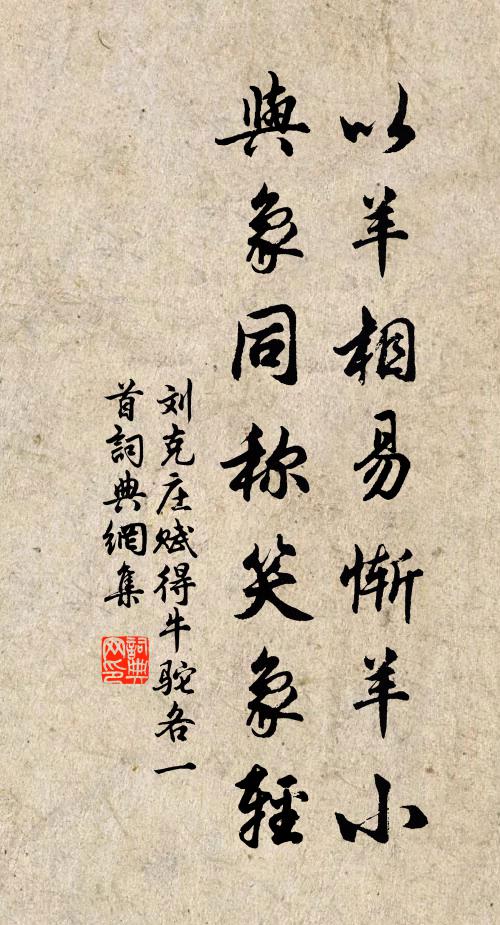 以羊相易惭羊小
與象同称笑象輕
刘克庄赋得牛驼各一
首詞典網集
詞典
网印